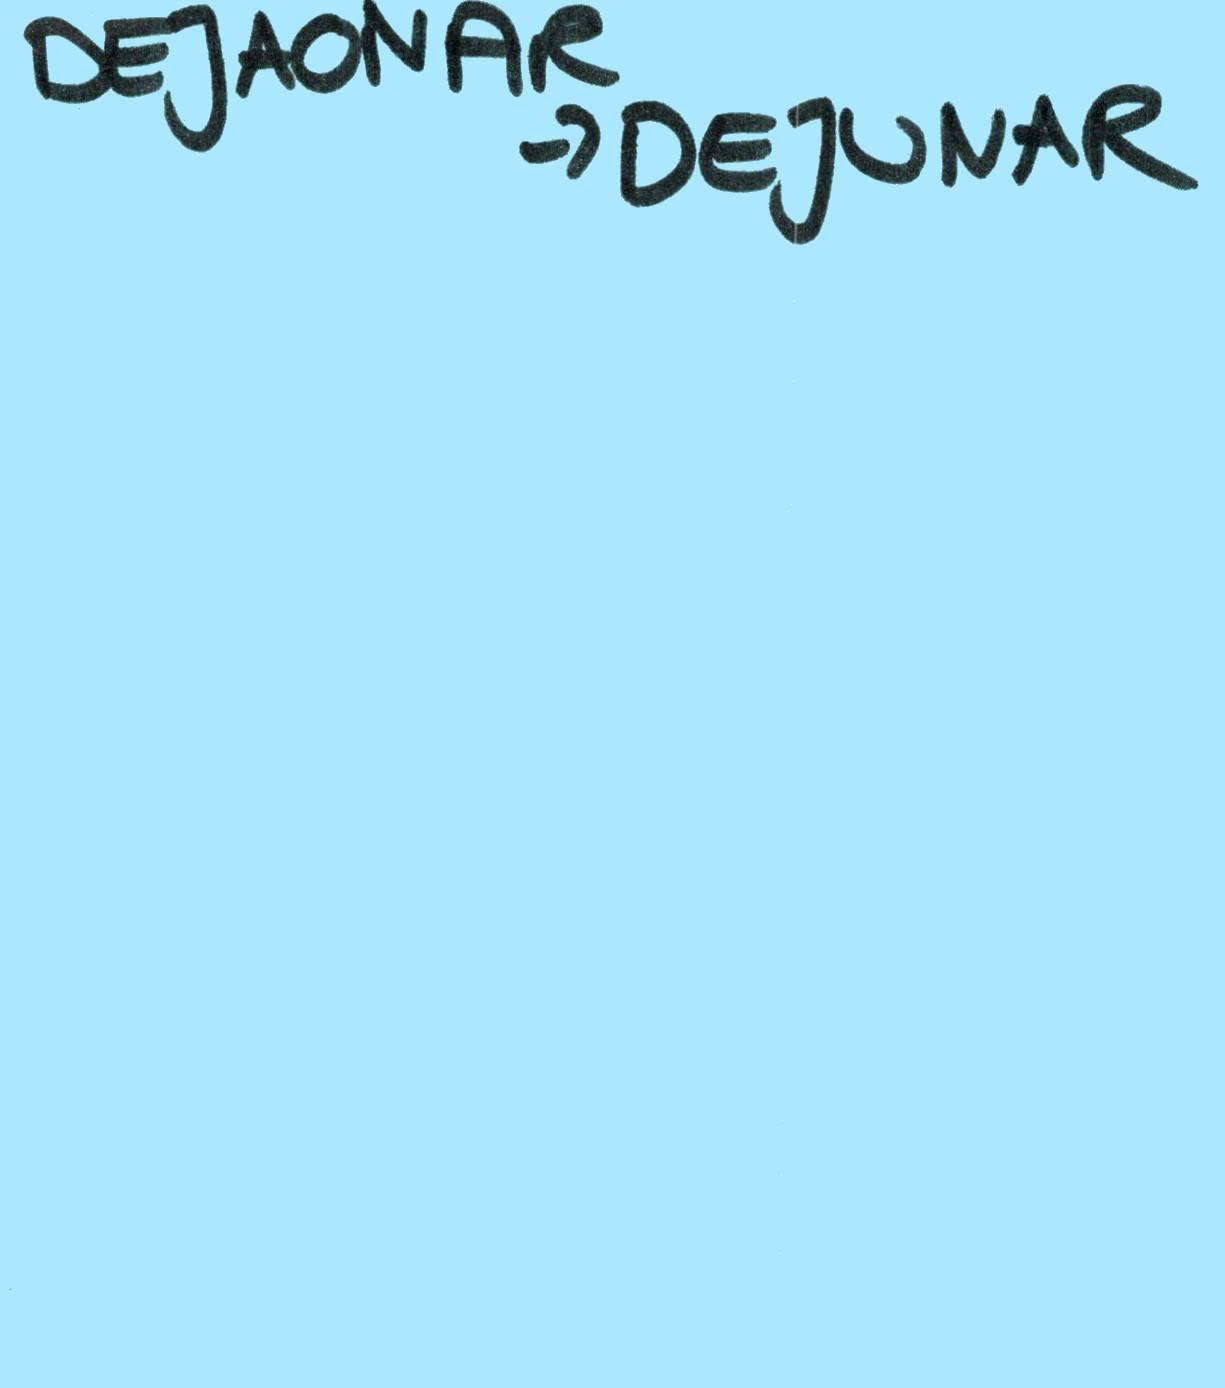 DEJAONAR
→ DEJUNAR